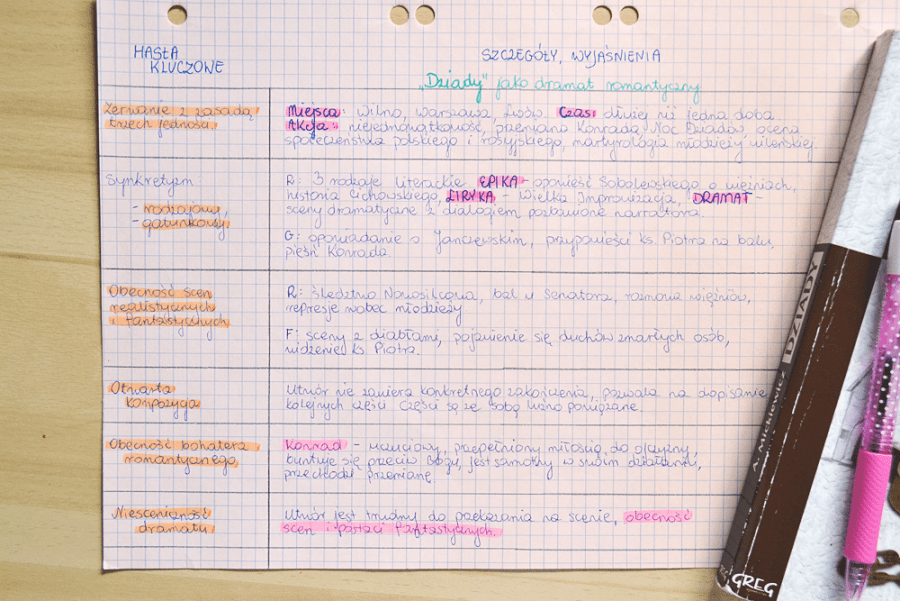 HASŁA
KLUCZOWE
SZCZEGÓŁY, WYJAŚNIENIA
„Dziady" jako dramat romantyczny
Zerwanie z zasadą
trzech jedności.
Miejsca: Wilno, Warszawa, Lwów. Czas: dłużej niż jedna doba.
Akcja: niejednowątkowość, przemiana Konrada, Noc Dziadów, ocena
społeczeństwa polskiego i rosyjskiego, martyrologia młodzieży wileńskiej.
Synkretyzm
- rodzajowy,
- gatunkowy
R: 3 rodzaje literackie, EPIKA - opowieść Sobolewskiego o więźniach,
historia Cichowskiego, LIRYKA - Wielka Improwizacja, DRAMAT -
sceny dramatyczne z dialogiem pozbawione narratora.
G: opowiadanie o Janczewskim, przypowieści ks. Piotra na balu,
pieśń Konrada.
Obecność scen
realistycznych
i fantastycznych
R: śledztwo Nowosilcowa, bal u Senatora, rozmowa więźniów,
represje wobec młodzieży
F: sceny z diabłami, pojawienie się duchów zmarłych osób,
widzenie ks. Piotra.
Otwarta
kompozycja
Utwór nie zawiera konkretnego zakończenia, pozwala na dopisanie
kolejnych części. Części są ze sobą luźno powiązane.
Obecność bohatera
romantycznego,
Konrad - uczuciowy, przepełniony miłością do ojczyzny,
buntuje się przeciw Bogu, jest samotny w swoim działaniu,
przechodzi przemianę
Niesceniczność
dramatu
Utwór jest trudny do pokazania na scenie, obecność
scen i postaci fantastycznych.
A. Mickiewicz DZIADY
GREG